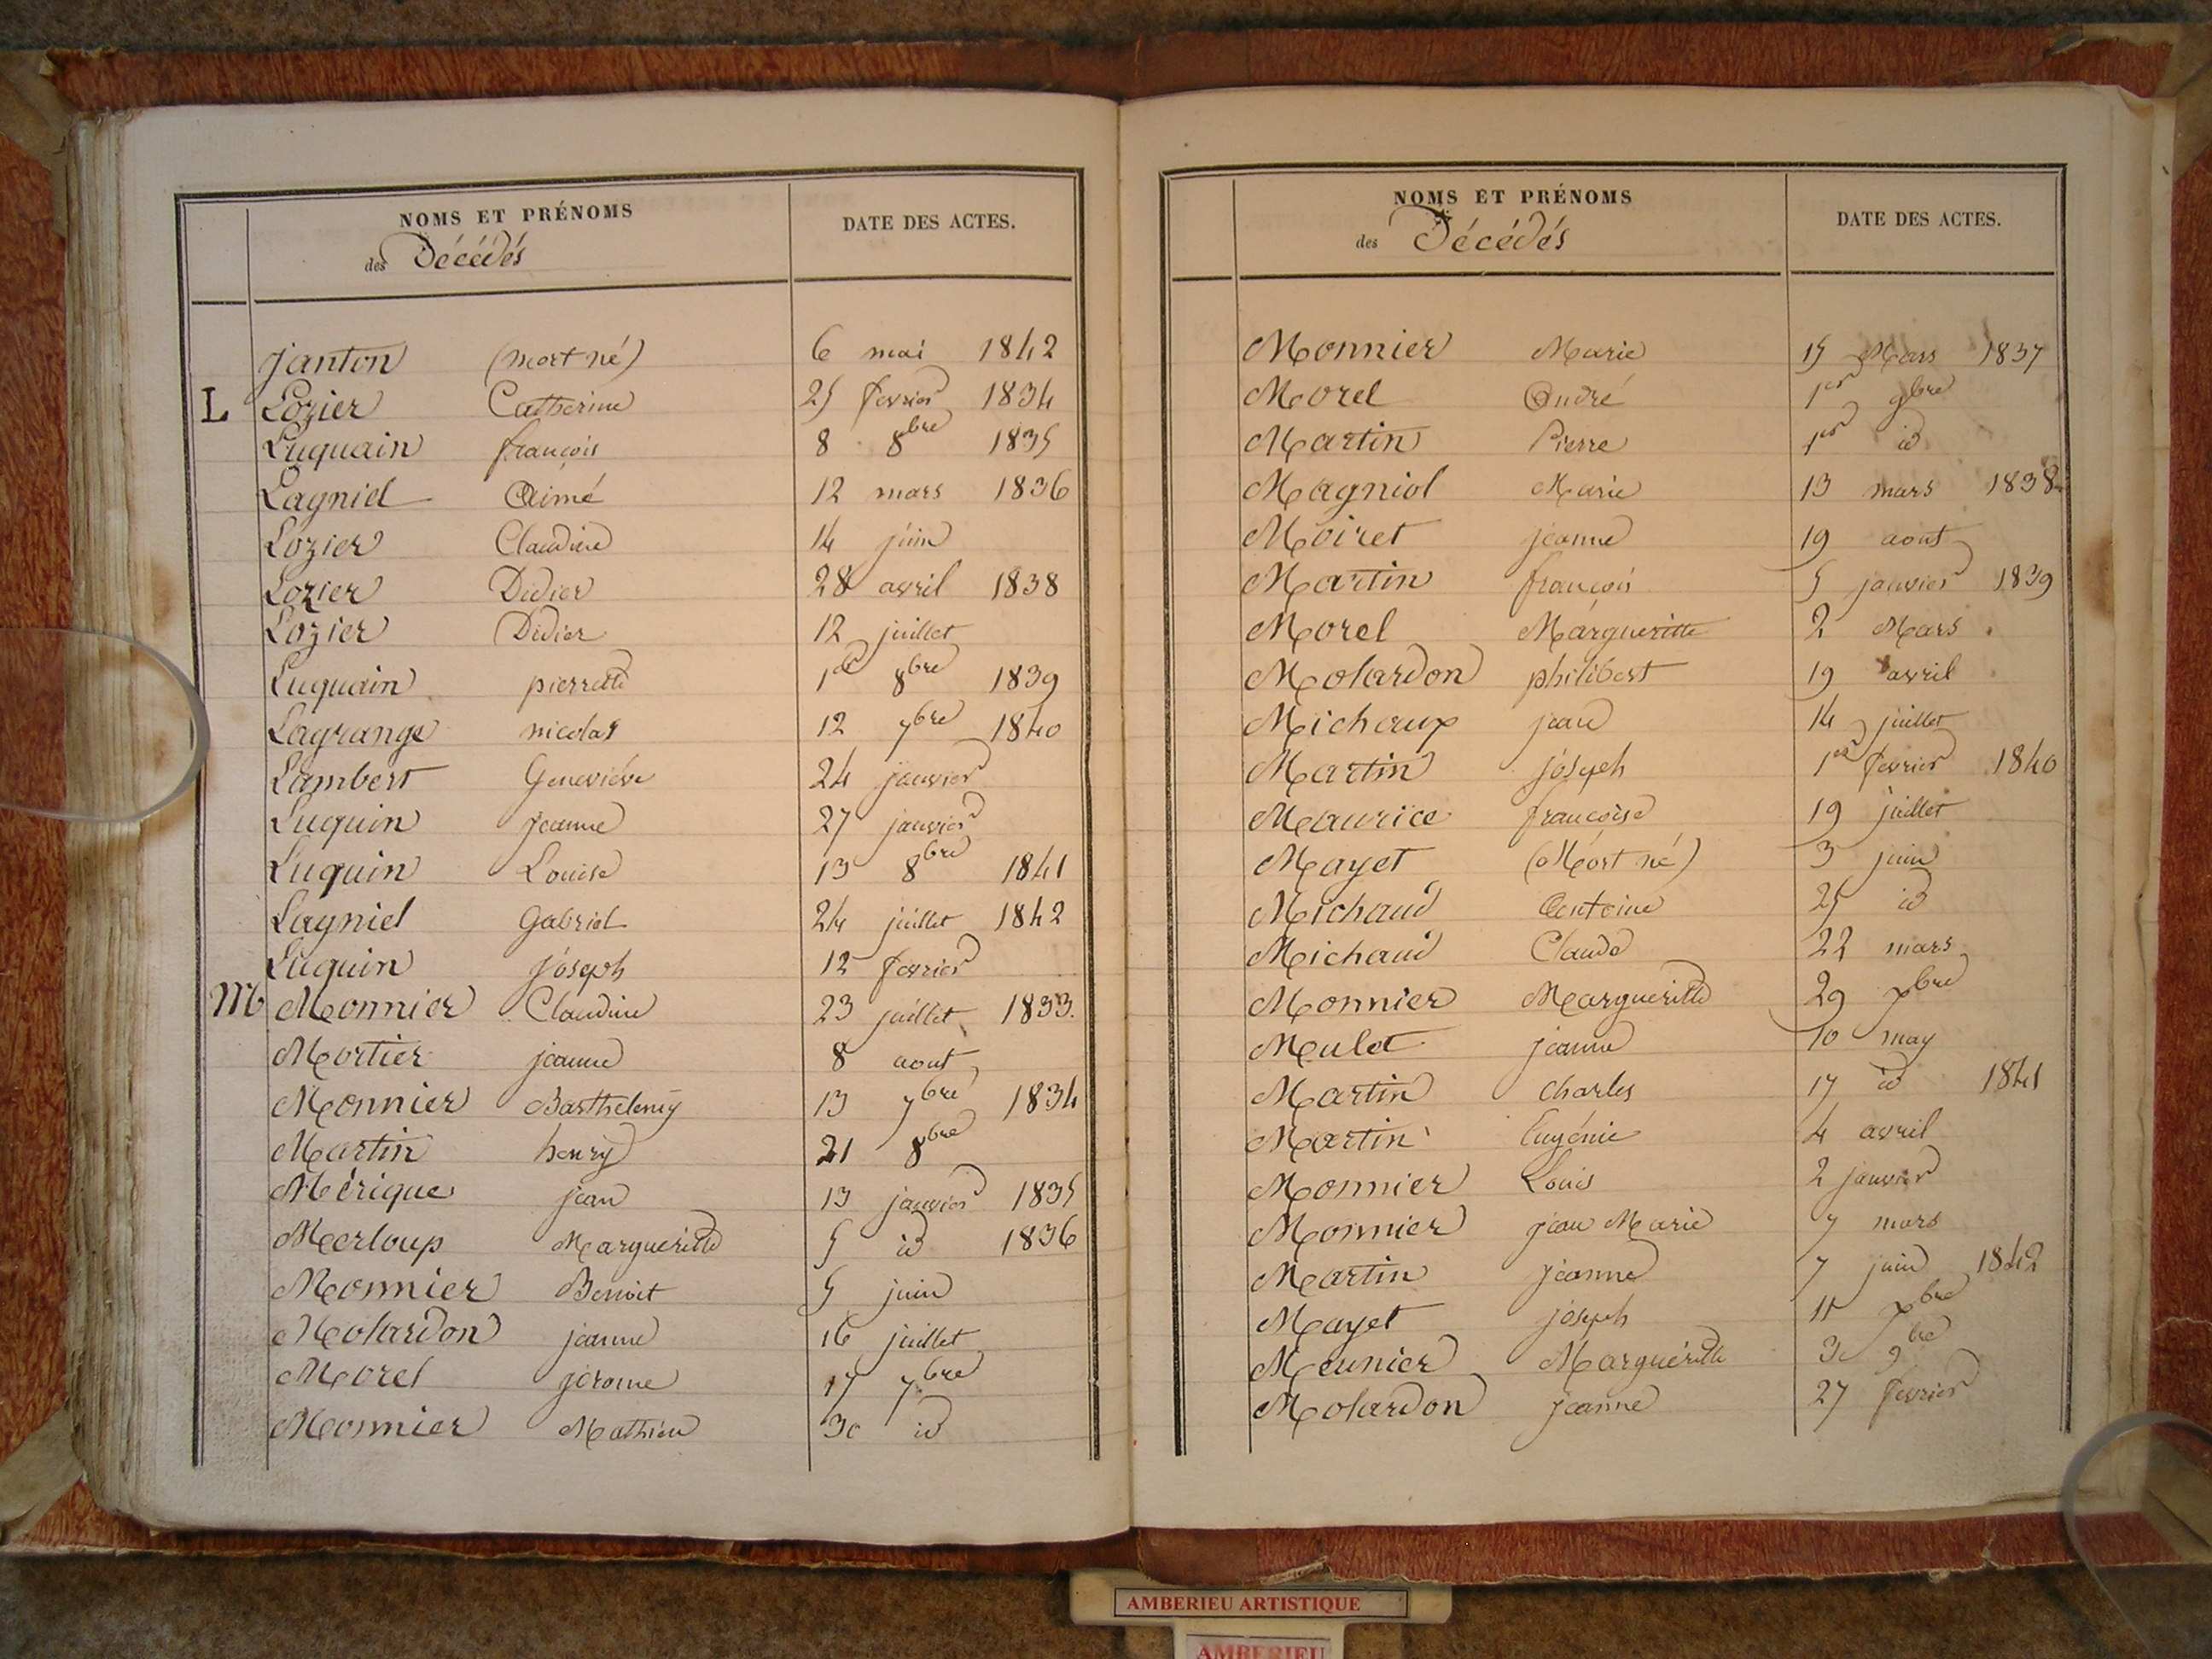 NOMS ET PRÉNOMS
DATE DES ACTES.
des Décédés
janton (mort né) 6 mai 1842
L Lozier Catherine 25 fevrier 1834
Luquain françois 8 8bre 1835
Lagniel Aimé 12 mars 1836
Lozier Claudine 14 juin
Lozier Didier 28 avril 1838
Lozier Didier 12 juillet
Luquain pierrette 1er 8bre 1839
Lagrange nicolas 12 7bre 1840
Lambert Geneviéve 24 janvier
Luquin jeanne 27 janvier
Luquin Louise 13 8bre 1841
Lagniel Gabriel 24 juillet 1842
Luquin joseph 12 fevrier
M Monnier Claudine 23 juillet 1833
Mortier jeanne 8 aout
Monnier Barthelemy 13 7bre 1834
Martin henry 21 8bre
Mérique jean 13 janvier 1835
Merloup Margueritte 5 id 1836
Monnier Benoit 5 juin
Molardon jeanne 16 juillet
Morel jérome 17 7bre
Monnier Mathieu 30 id
NOMS ET PRÉNOMS
DATE DES ACTES.
des Décédés
Monnier Marie 15 Mars 1837
Morel André 1er 9bre
Martin Pierre 1er id
Magniol Marie 13 mars 1838
Moiret jeanne 19 aout
Martin françois 5 janvier 1839
Morel Margueritte 2 Mars
Molardon philibert 19 avril
Michaux jean 14 juillet
Martin joseph 1er fevrier 1840
Maurice françoise 19 juillet
Mayet (Mort né) 3 juin
Michaud Antoine 25 id
Michaud Claude 22 mars
Monnier Margueritte 29 xbre
Mulet jeanne 10 may
Martin charles 17 id 1841
Martin Eugénie 4 avril
Monnier Louis 2 janvier
Monnier jean Marie 7 mars
Martin jeanne 7 juin 1842
Mayet joseph 11 xbre
Meunier Marguéritte 30 9bre
Molardon jeanne 27 fevrier
AMBERIEU ARTISTIQUE
AMBERIEU